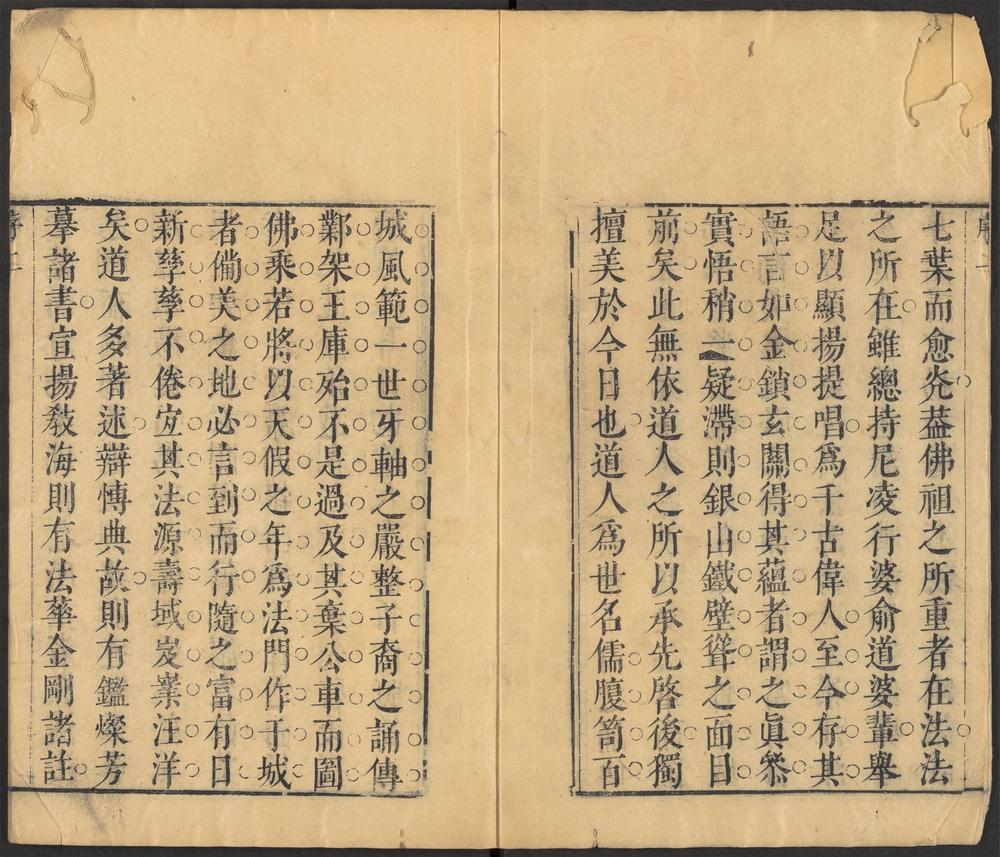 七葉而愈光蓋佛祖之所重者在法法
之所在雖總持尼凌行婆俞道婆輩舉
足以顯揚提唱爲千古偉人至今存其
語言如金鎖玄關得其蘊者謂之眞叅
實悟稍一疑滯則銀山鐵壁聳之面目
前矣此無依道人之所以承先啓後獨
擅美於今日也道人爲世名儒腹笥百
城風範一世牙軸之嚴整子裔之誦傳
鄴架王庫殆不是過及其棄公車而圖
佛乘若將以天假之年爲法門作于城
者備美之地必言到而行隨之富有日
新孳孳不倦宐其法源壽域岌嶪汪洋
矣道人多著述辯博典故則有鑑燦芳
摹諸書宣揚敎海則有法華金剛諸註
序二